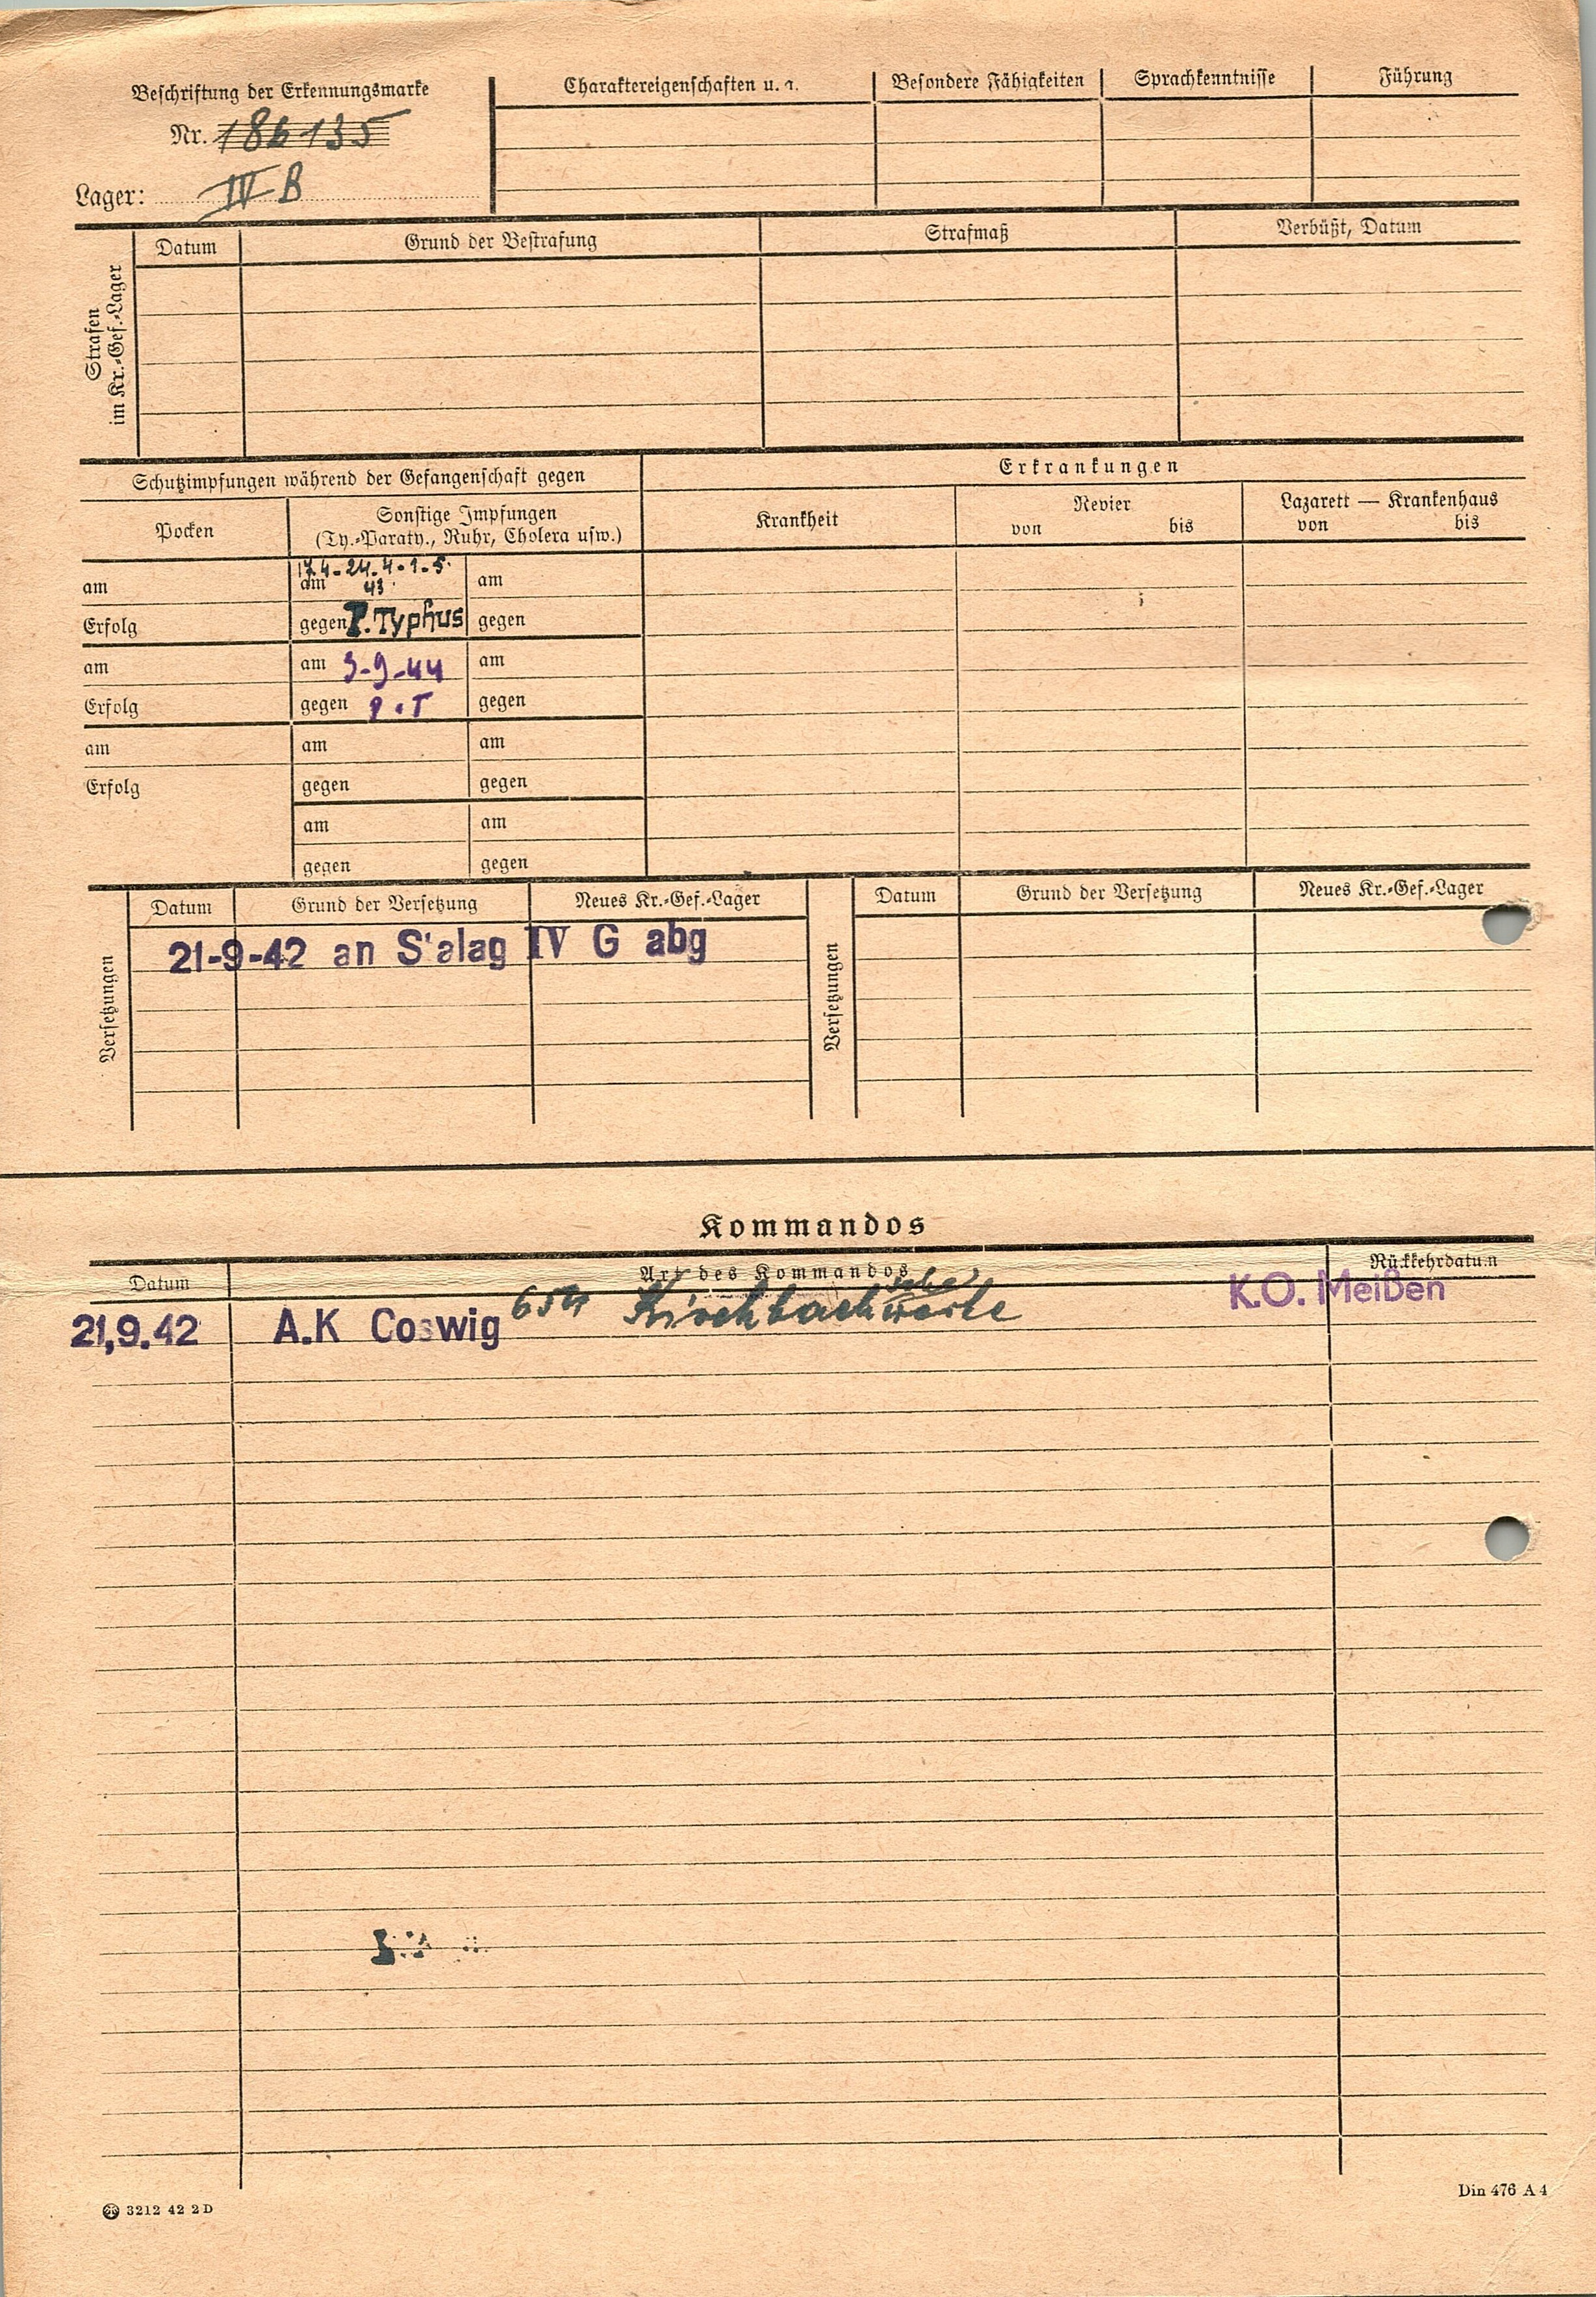 Beschriftung der Erkennungsmarke
Nr. 186135
Lager: IV B
Charaktereigenschaften u. a.
Besondere Fähigkeiten
Sprachkenntnisse
Führung
Strafen
im Kr.-Gef.-Lager
Datum
Grund der Bestrafung
Strafmaß
Verbüßt, Datum
Schutzimpfungen während der Gefangenschaft gegen
Erkrankungen
Pocken
Sonstige Impfungen
(Ty.-Paraty., Ruhr, Cholera usw.)
Krankheit
Revier
von bis
Lazarett — Krankenhaus
von bis
17.4-24.4-1-5.
am am 43 am
Erfolg gegen P.Typhus gegen
am am 3-9-44 am
Erfolg gegen P.T gegen
am am am
Erfolg gegen gegen
am am
gegen gegen
Versetzungen
Datum Grund der Versetzung Neues Kr.-Gef.-Lager
21-9-42 an S'alag IV G abg
Versetzungen
Datum Grund der Versetzung Neues Kr.-Gef.-Lager
Kommandos
Datum Art des Kommandos Rückkehrdatum
21.9.42 A.K Coswig Kirchbach'sche werke K.O. Meißen
3212 42 2 D
Din 476 A 4